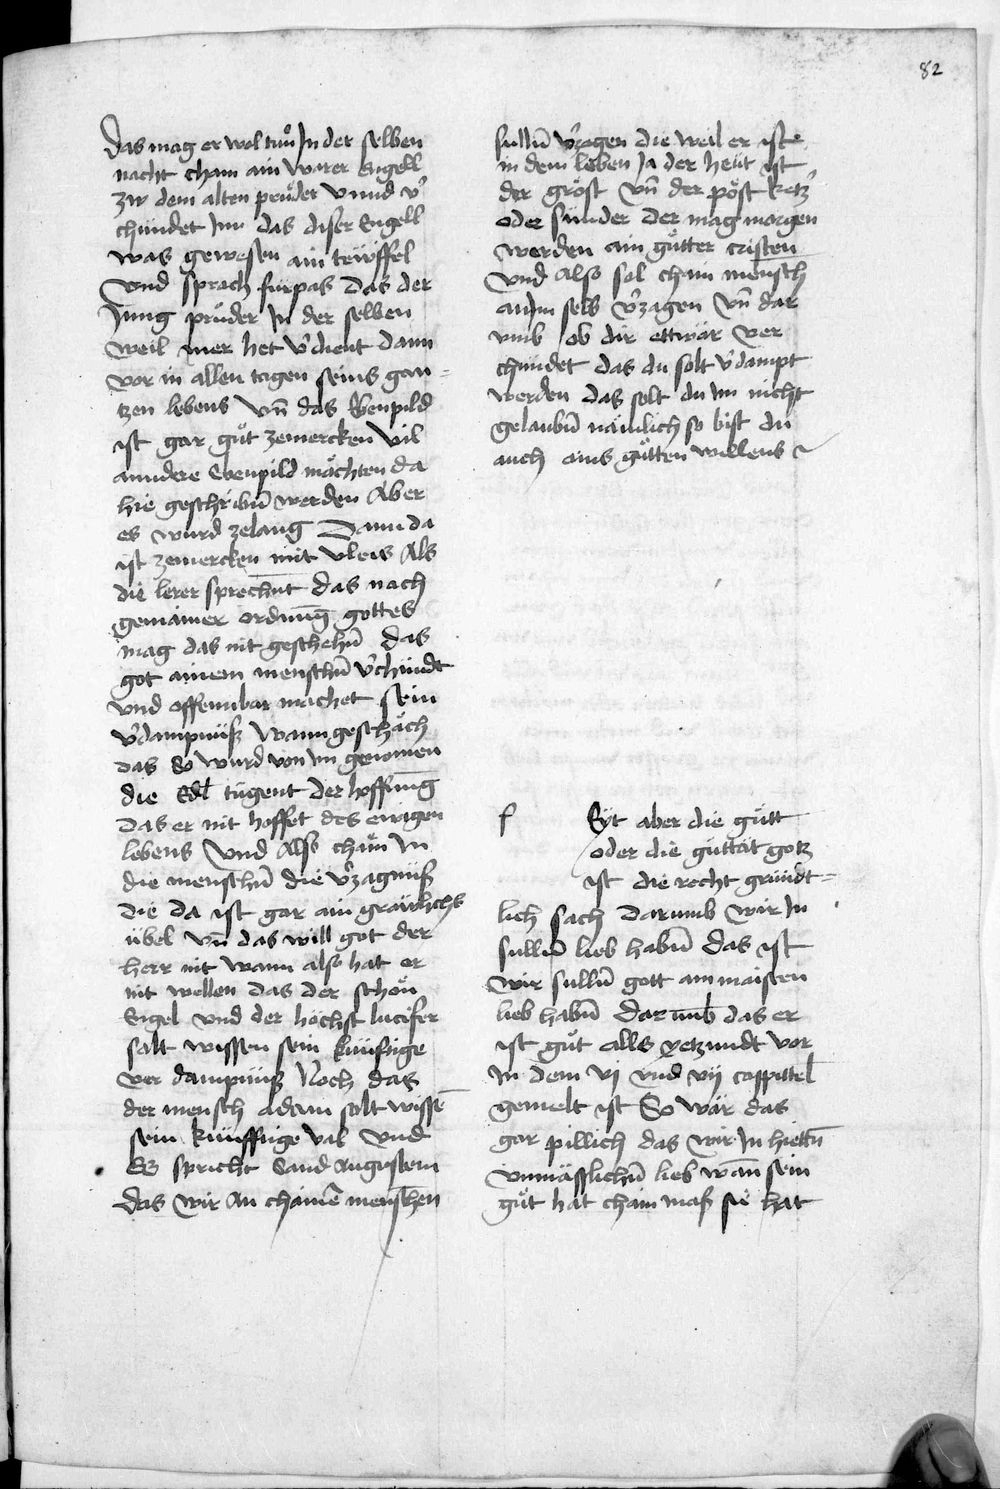 82
Das mag er wol tuͦn In der selben
nacht cham ain warer Engell
zw dem alten pruͤder vnnd v̓
chündet Im das diser Engell
was gewesen ain teẅffel
vnd sprach fürpas das der
Jung pruͤder In der selben
weil mer het v̓dient dann
vor in allen tagen seins gan¬
tzen lebens vn̄ das Ebenpild
ist gar guͤt zemercken vil
anndere Ebenpild moͤchten da
hie geschribn̄ werden Aber
es wurd zelanng Dann da
ist zemercken mit vleis Als
die lerer sprechn̄t das nach
gemainer ordnūg gottes
mag das nit geschehn̄ das
got ainem menschn̄ v̓chündt
vnd offennbar machet sein
v̓dampnüß Wann geschäch
das So wurd von Im genomen
die Edl tugent der hoffnūg
Das er nit hoffet des ewigen
lebens Vnd Also chäm In
die menschn̄ die v̓zagnüß
die da ist gar ain gräwlichs
übel vn̄ das will got der
herr nit wann also hat er
nit wellen das der schön
Engel vnd der höchst lucifer
solt wissen sein künftige
ver dampnüß Noch das
der mensch adam solt wissē
sein künfftige val vnd
Es spricht Sand Augustein
das wir an chainē menschen
sulln̄ v̓zagen die weil er ist
in dem leben Ja der heüt ist
der gröst vn̄ der pöst ketz̓
oder sünder der mag morgen
werden ain guͤtter cristen
vnd Also sol chain mensch
an Im selb v̓zagen vn̄ dar
vmb ob dir ettwär ver
chündet das du solt v̓dampt
werden das solt du Im nicht
gelaubn̄ nämlich so bist du
auch ains guͤtten willens
f Syt aber die guͤtt
oder die guttät gotz
ist die recht gründt¬
lich sach darumb wir In
sulln̄ lieb habn̄ das ist
wir sulln̄ gott am maisten
lieb habn̄ Darumb das er
ist guͤt alls yetzundt vor
In dem vj vnd vij cappittel
gemelt ist So wär das
gar pillich das wir In hiettn̄
vnmässlichn̄ lieb wān sein
guͤt hat chain maß sie hat